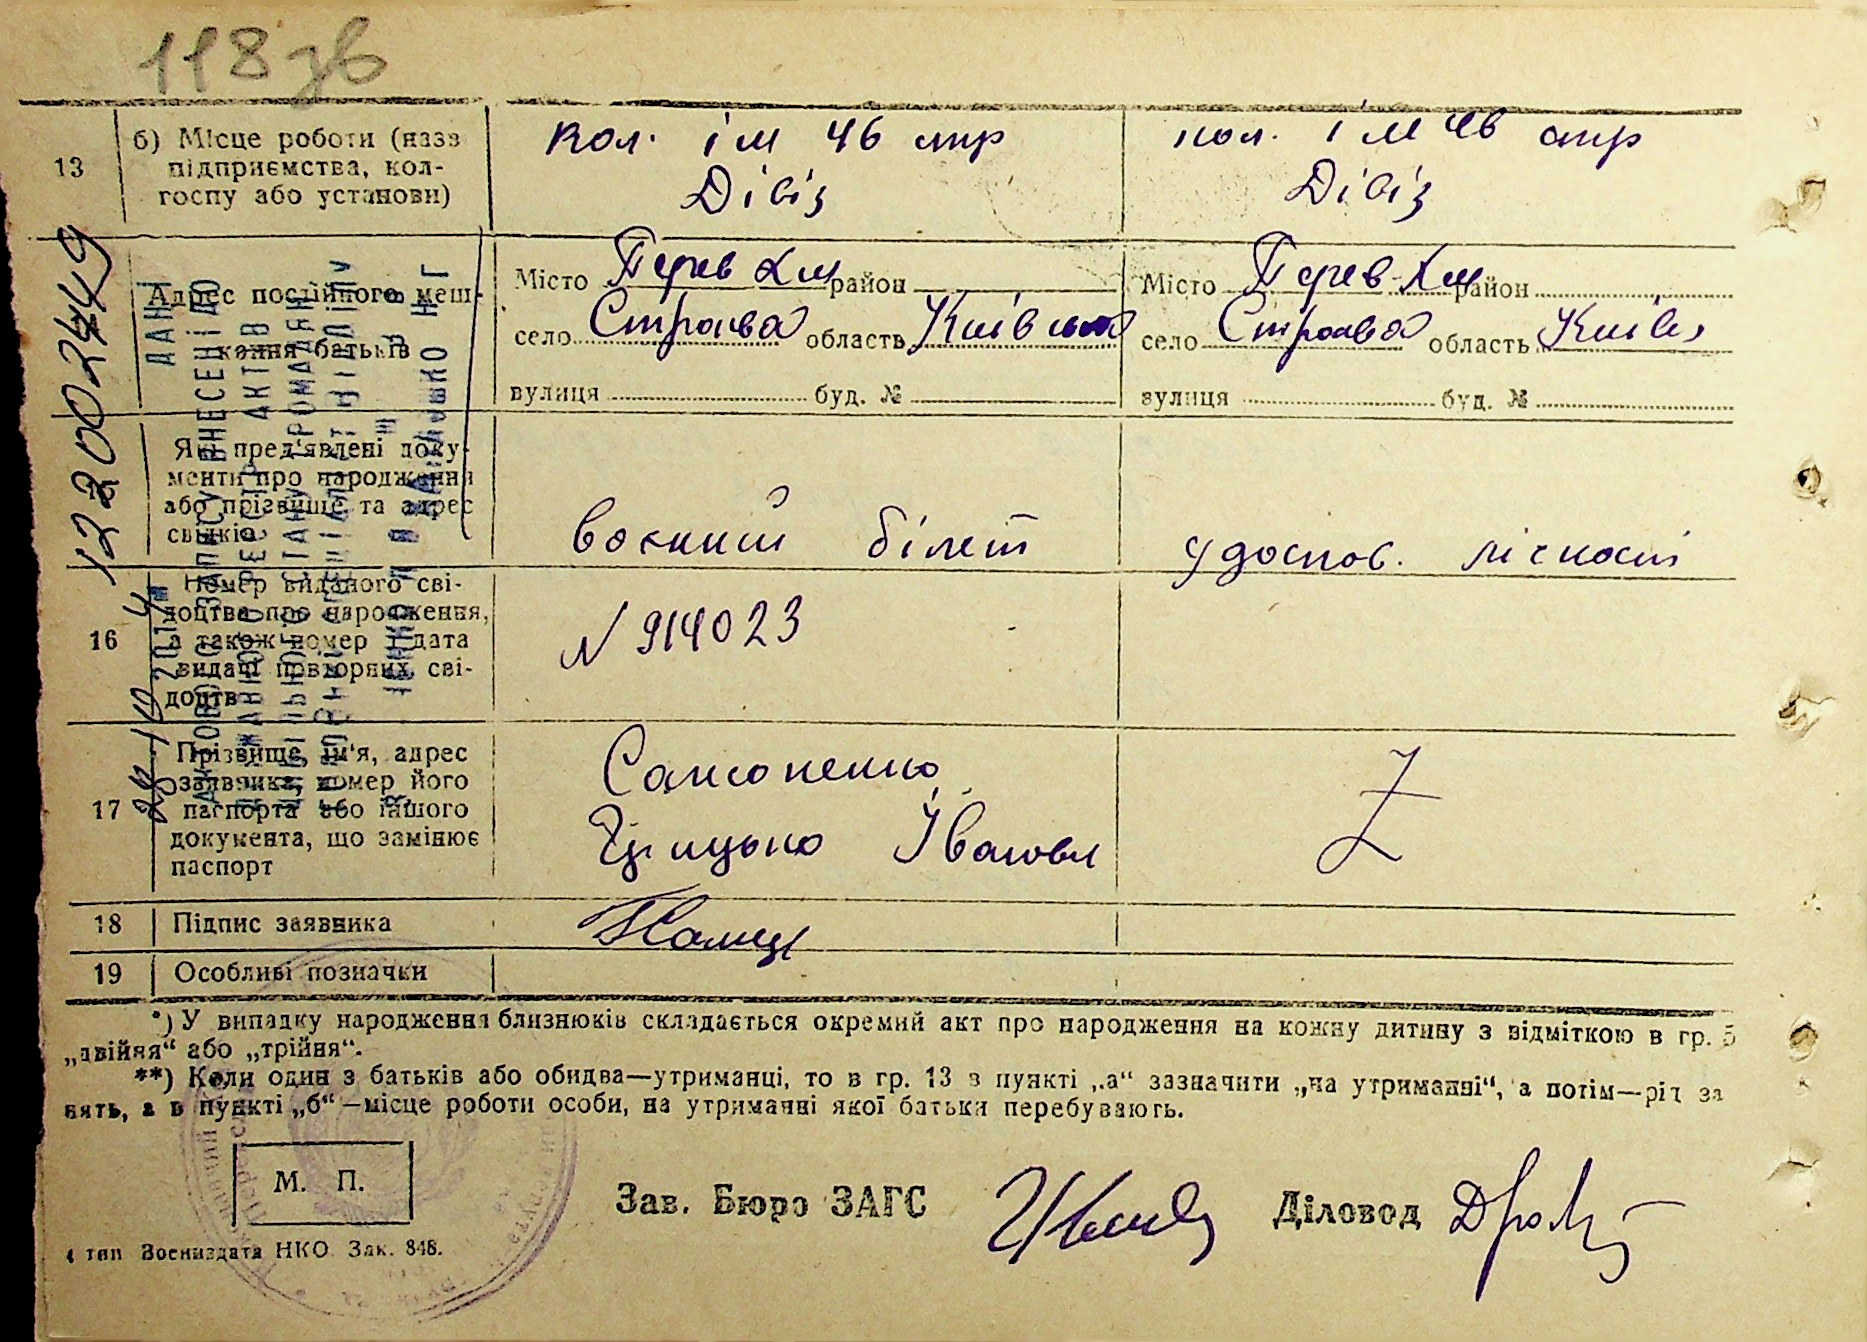 118 зв
13
б) Місце роботи (назв
підприємства, кол-
госпу або установи)
кол. ім 46 стр
Дівіз
кол. ім 46 стр
Дівіз
Адрес постійного меш-
кання батьків
Місто Перев Хм район
село Строква область Київська
вулиця буд. №
Місто Перев-Хм район
село Строква область Київ
вулиця буд. №
Які пред'явлені доку-
менти про народження
або прізвище та адрес
свідків
военний білет
удостов. лічності
16
Номер виданого сві-
доцтва про народження,
а також номер і дата
видачі повторних сві-
доцтв
N 914023
17
Прізвище, ім'я, адрес
заявника, номер його
паспорта або іншого
документа, що замінює
паспорт
Самоненко
Грицько Іванови
Z
18
Підпис заявника
19
Особливі позначки
*) У випадку народження близнюків складається окремий акт про народження на кожну дитину з відміткою в гр. 5
„двійня“ або „трійня“.
**) Коли один з батьків або обидва—утриманці, то в гр. 13 в пункті „а“ зазначити „на утриманні“, а потім—рід за
нять, а в пункті „б“—місце роботи особи, на утриманні якої батьки перебувають.
М. П.
Зав. Бюро ЗАГС
Діловод
4 тип Воениздата НКО. Зак. 848.